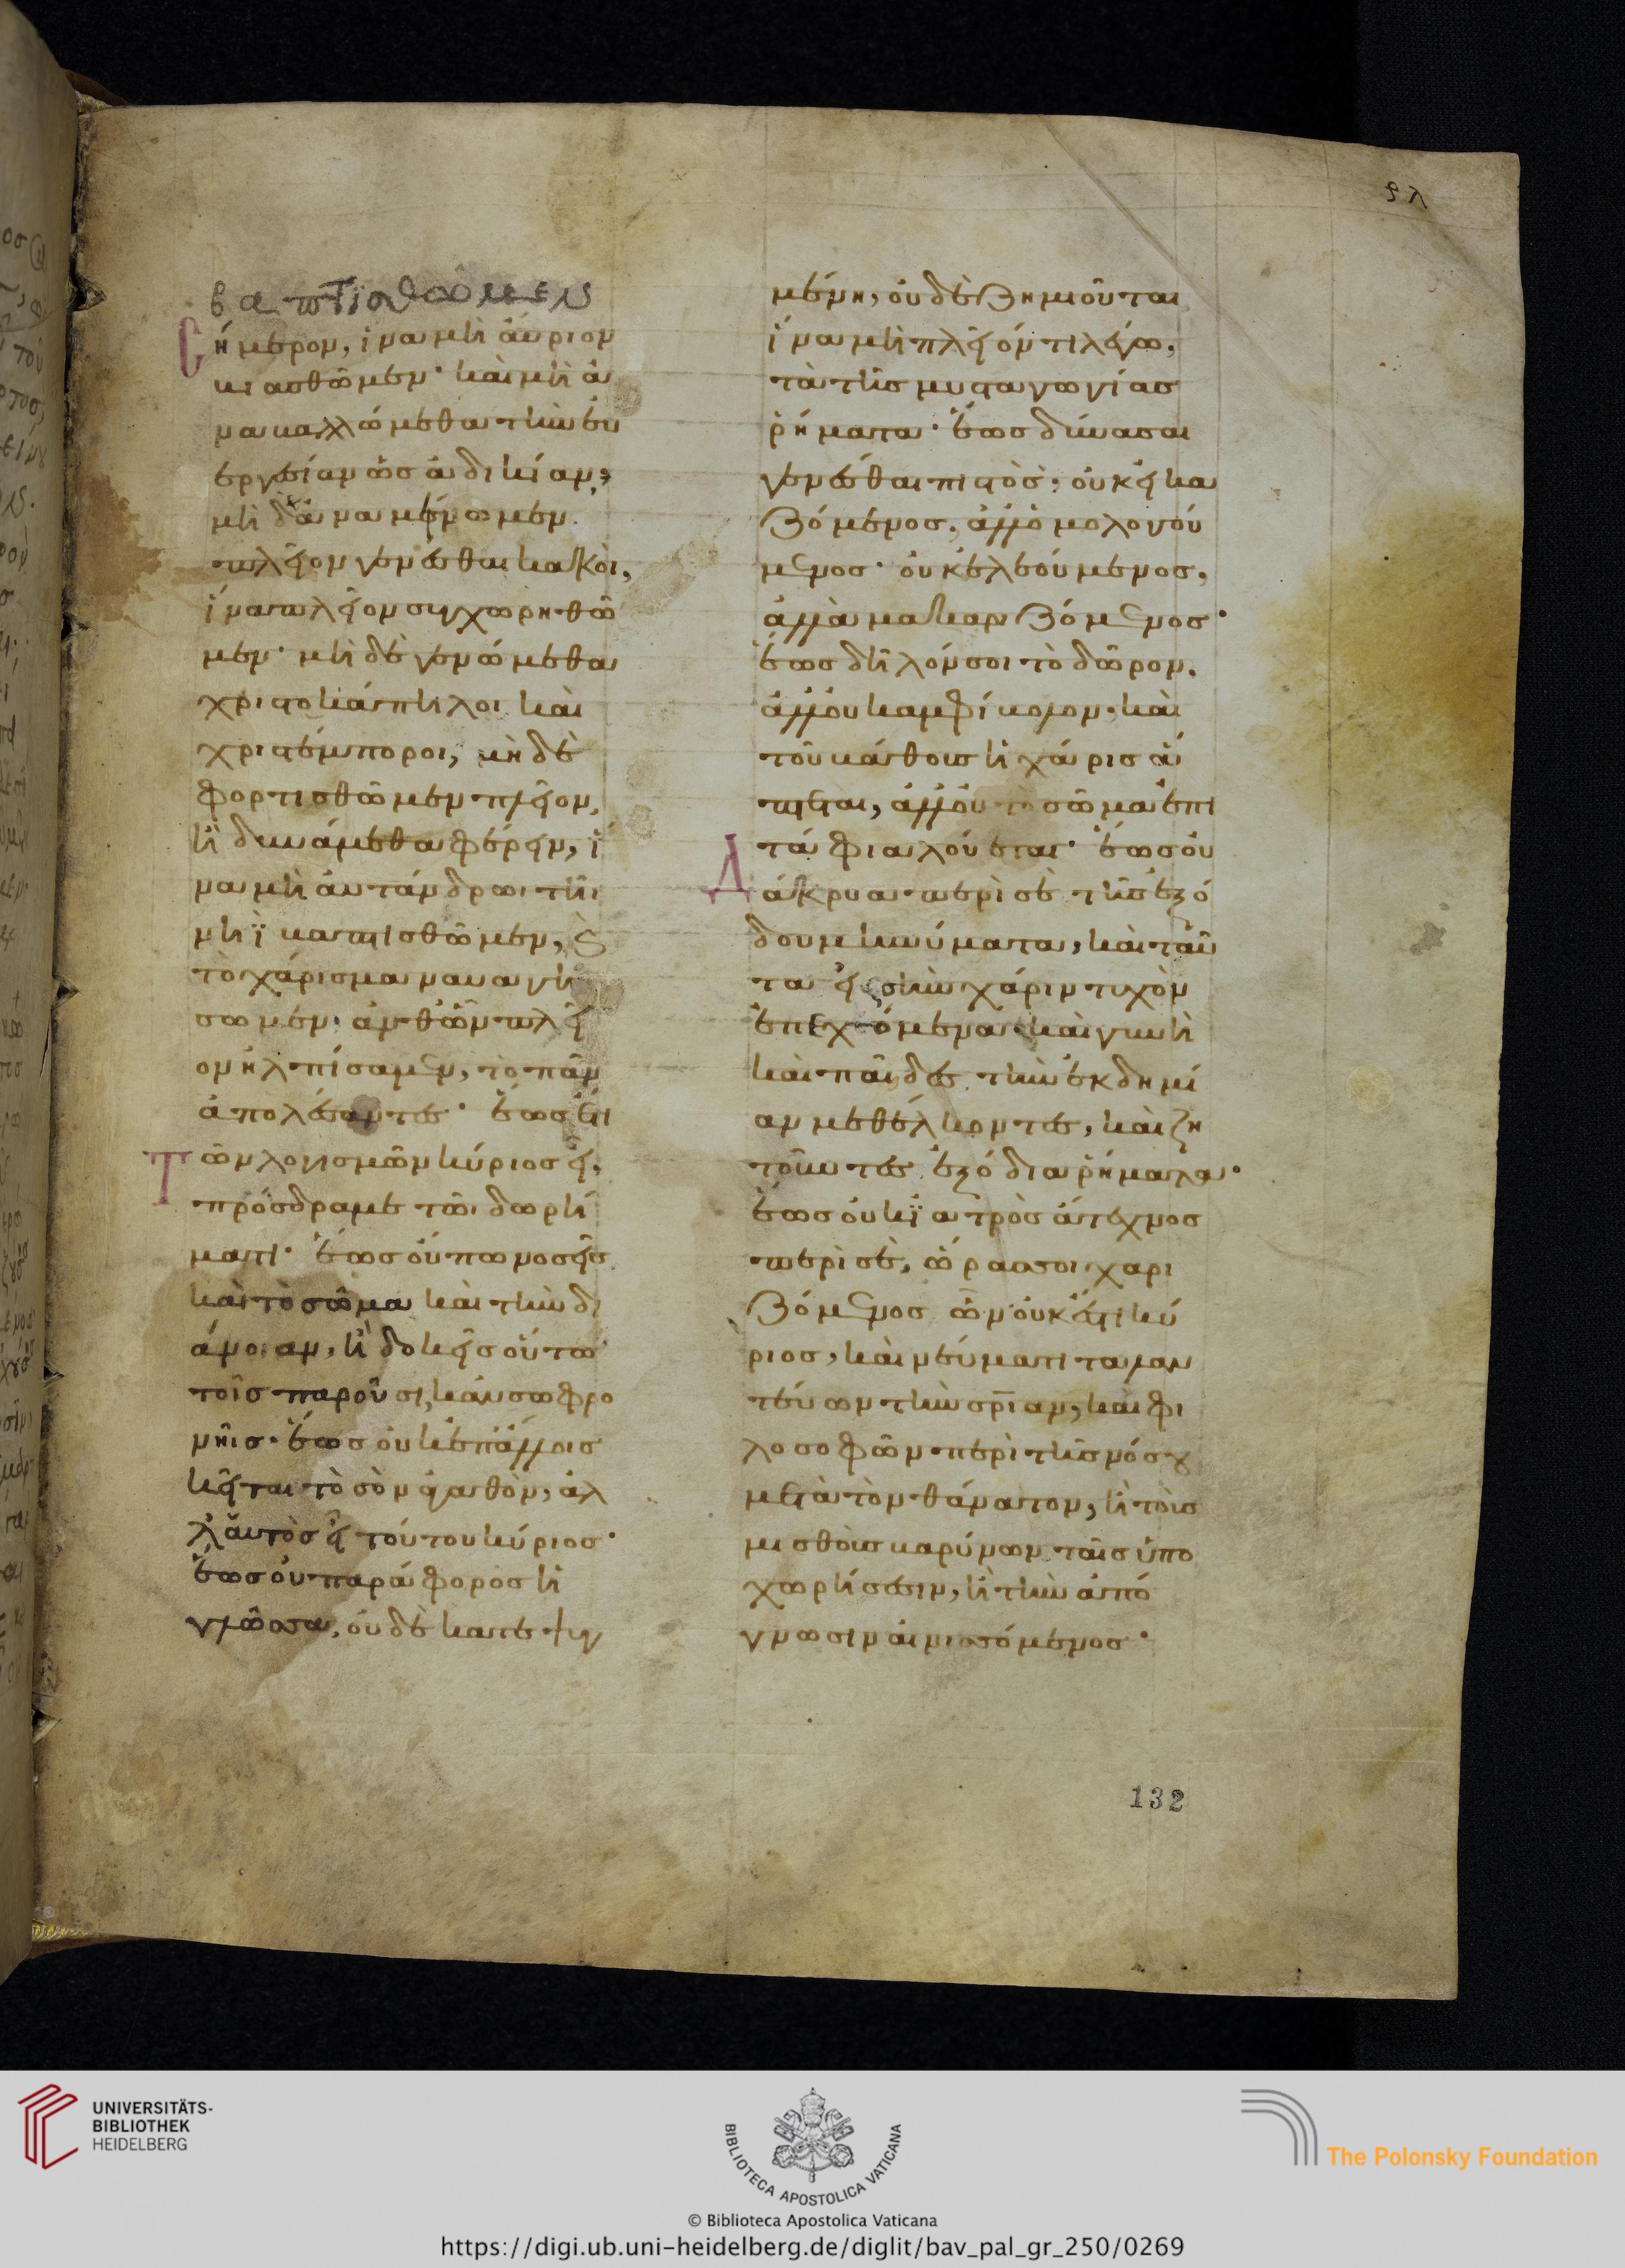 λς
βαπτϊσθῶμεν
σήμερον, ἵνα μὴ ἀύριον
βιασθῶμεν· καὶ μὴ ἀ
ναβαλλώμεθα τὴν ἐυ
εργεσίαν ὡς ἀδικίαν,
μὴ δ' ἀναμένωμεν
πλεῖον γενέσθαι κακοὶ,
ἵνα πλεῖον συγχωρηθῶ
μεν· μὴ δὲ γενώμεθα
χριστοκάπηλοι καὶ
χριστέμποροι, μὴ δὲ
φορτισθῶμεν πλεῖον,
ἢ δυνάμεθα φέρειν, ἵ
να μὴ ἀυτάνδρωι τῆι
νηῒ βαπτισθῶμεν, καὶ
τὸ χάρισμα ναυαγή
σωμεν· ἀνθῶν πλεῖ
ον ἠλπίσαμεν, τὸ πᾶν
ἀπολέσαντες· ἕως ἔτι
τῶν λογισμῶν κύριος εἶ,
πρόσδραμε τῶι δωρή
ματι· ἕως οὔπω νοσεῖς
καὶ τὸ σῶμα καὶ τὴν δι
άνοιαν, ἢ δοκεῖς οὕτω
τοῖς παροῦσι, κἂν σωφρο
νῆις· ἕως οὐκ ἐπ' ἄλλοις
κεῖται τὸ σὸν ἀγαθὸν, ἀλ
λ' ἀυτὸς εἶ τούτου κύριος·
ἕως οὐ παράφορος ἡ
γλῶσσα, οὐδὲ κατεψυγ
μένη, οὐδὲ ζημιοῦται
ἵνα μὴ πλεῖόν τι λέγω,
τὰ τῆς μυσταγωγίας
ῥήματα· ἕως δύνασαι
γενέσθαι πιστὸς· οὐκ εἰκα
ζόμενος, ἀλλ' ὁμολογού
μενος· οὐκ ἐλεούμενος,
ἀλλὰ μακαριζόμενος·
ἕως δῆλόν σοι τὸ δῶρον,
ἀλλ' οὐκ ἀμφίβολον· καὶ
τοῦ βάθους ἡ χάρις ἅ
πτεται, ἀλλ' οὐ τὸ σῶμα ἐπι
τάφια λούεται· ἕως οὐ
δάκρυα περὶ σὲ τῆς ἐξό
δου μηνύματα, καὶ ταῦ
τα εἰς τὴν χάριν τυχὸν
ἐπεχόμενα· καὶ γυνὴ
καὶ παῖδες τὴν ἐκδημί
αν μεθέλκοντες, καὶ ζη
τοῦντες ἐξόδια ῥήματα·
ἕως οὐκ ϊατρὸς ἄτεχνος
περὶ σὲ, ὥρας σοι χαρι
ζόμενος ὧν οὐκ ἔστι κύ
ριος, καὶ νεύματι ταλαν
τεύων τὴν σρ̅ίαν, καὶ φι
λοσοφῶν περὶ τῆς νόσου
μετὰ τὸν θάνατον, ἢ τοῖς
μισθοῖς βαρύνων ταῖς ὑπο
χωρήσεσιν, ἢ τὴν ἀπό
γνωσιν ἀινισσόμενος·
132
UNIVERSITÄTS-
BIBLIOTHEK
HEIDELBERG
BIBLIOTECA APOSTOLICA VATICANA
The Polonsky Foundation
© Biblioteca Apostolica Vaticana
https://digi.ub.uni-heidelberg.de/diglit/bav_pal_gr_250/0269